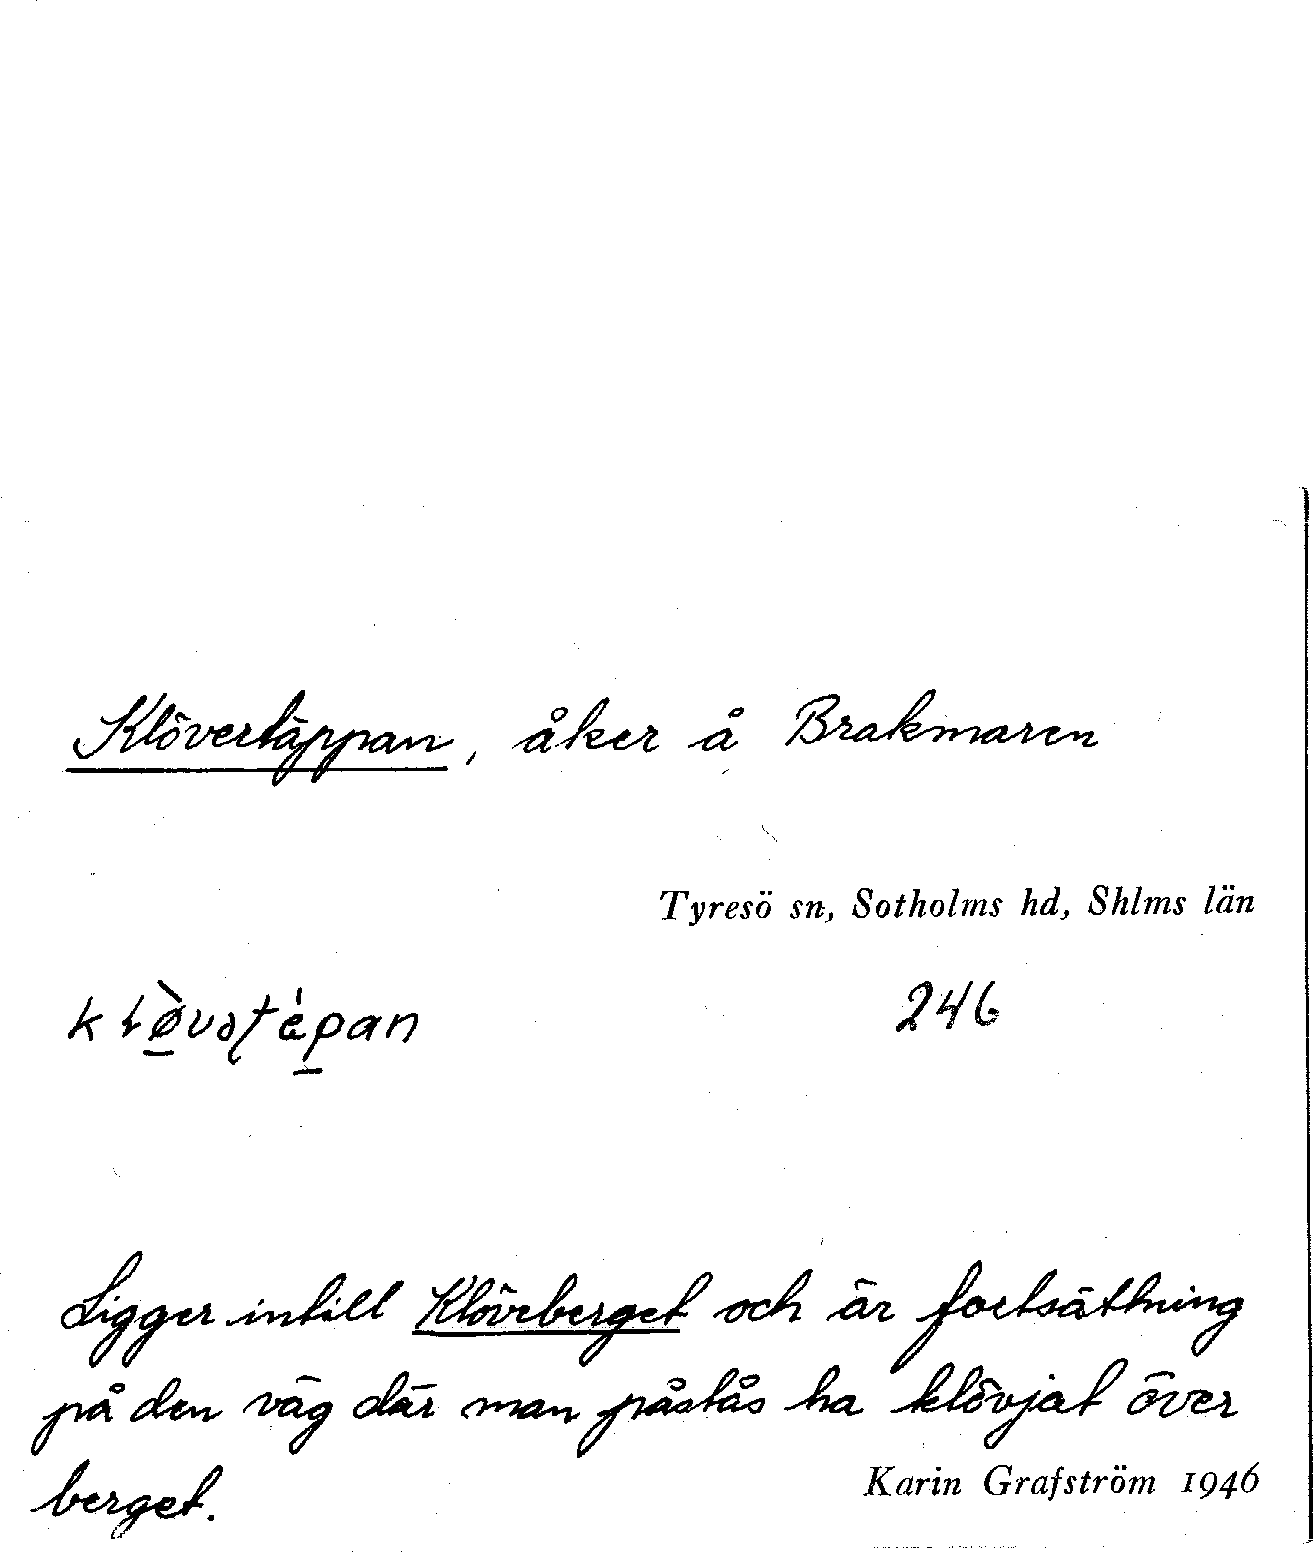 Klövertäppan, åker å Brakmaren
Tyresö sn, Sotholms hd, Shlms län
246
Ligger intill Klöveberget och är fortsättning
på den väg där man påstås ha klövjat över
berget.
Karin Grafström 1946